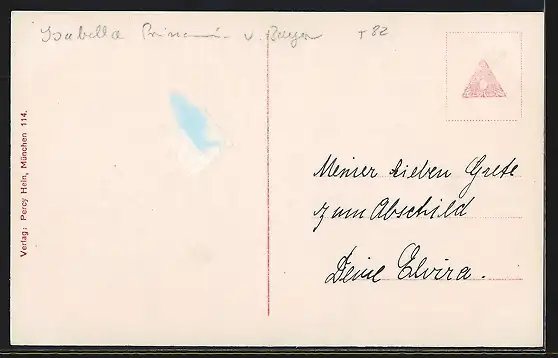 Isabella Prinzessin v. Bayern T 82
Verlag: Percy Hein, München 114.
Meiner lieben Grete
zum Abschild
Deine Elvira.